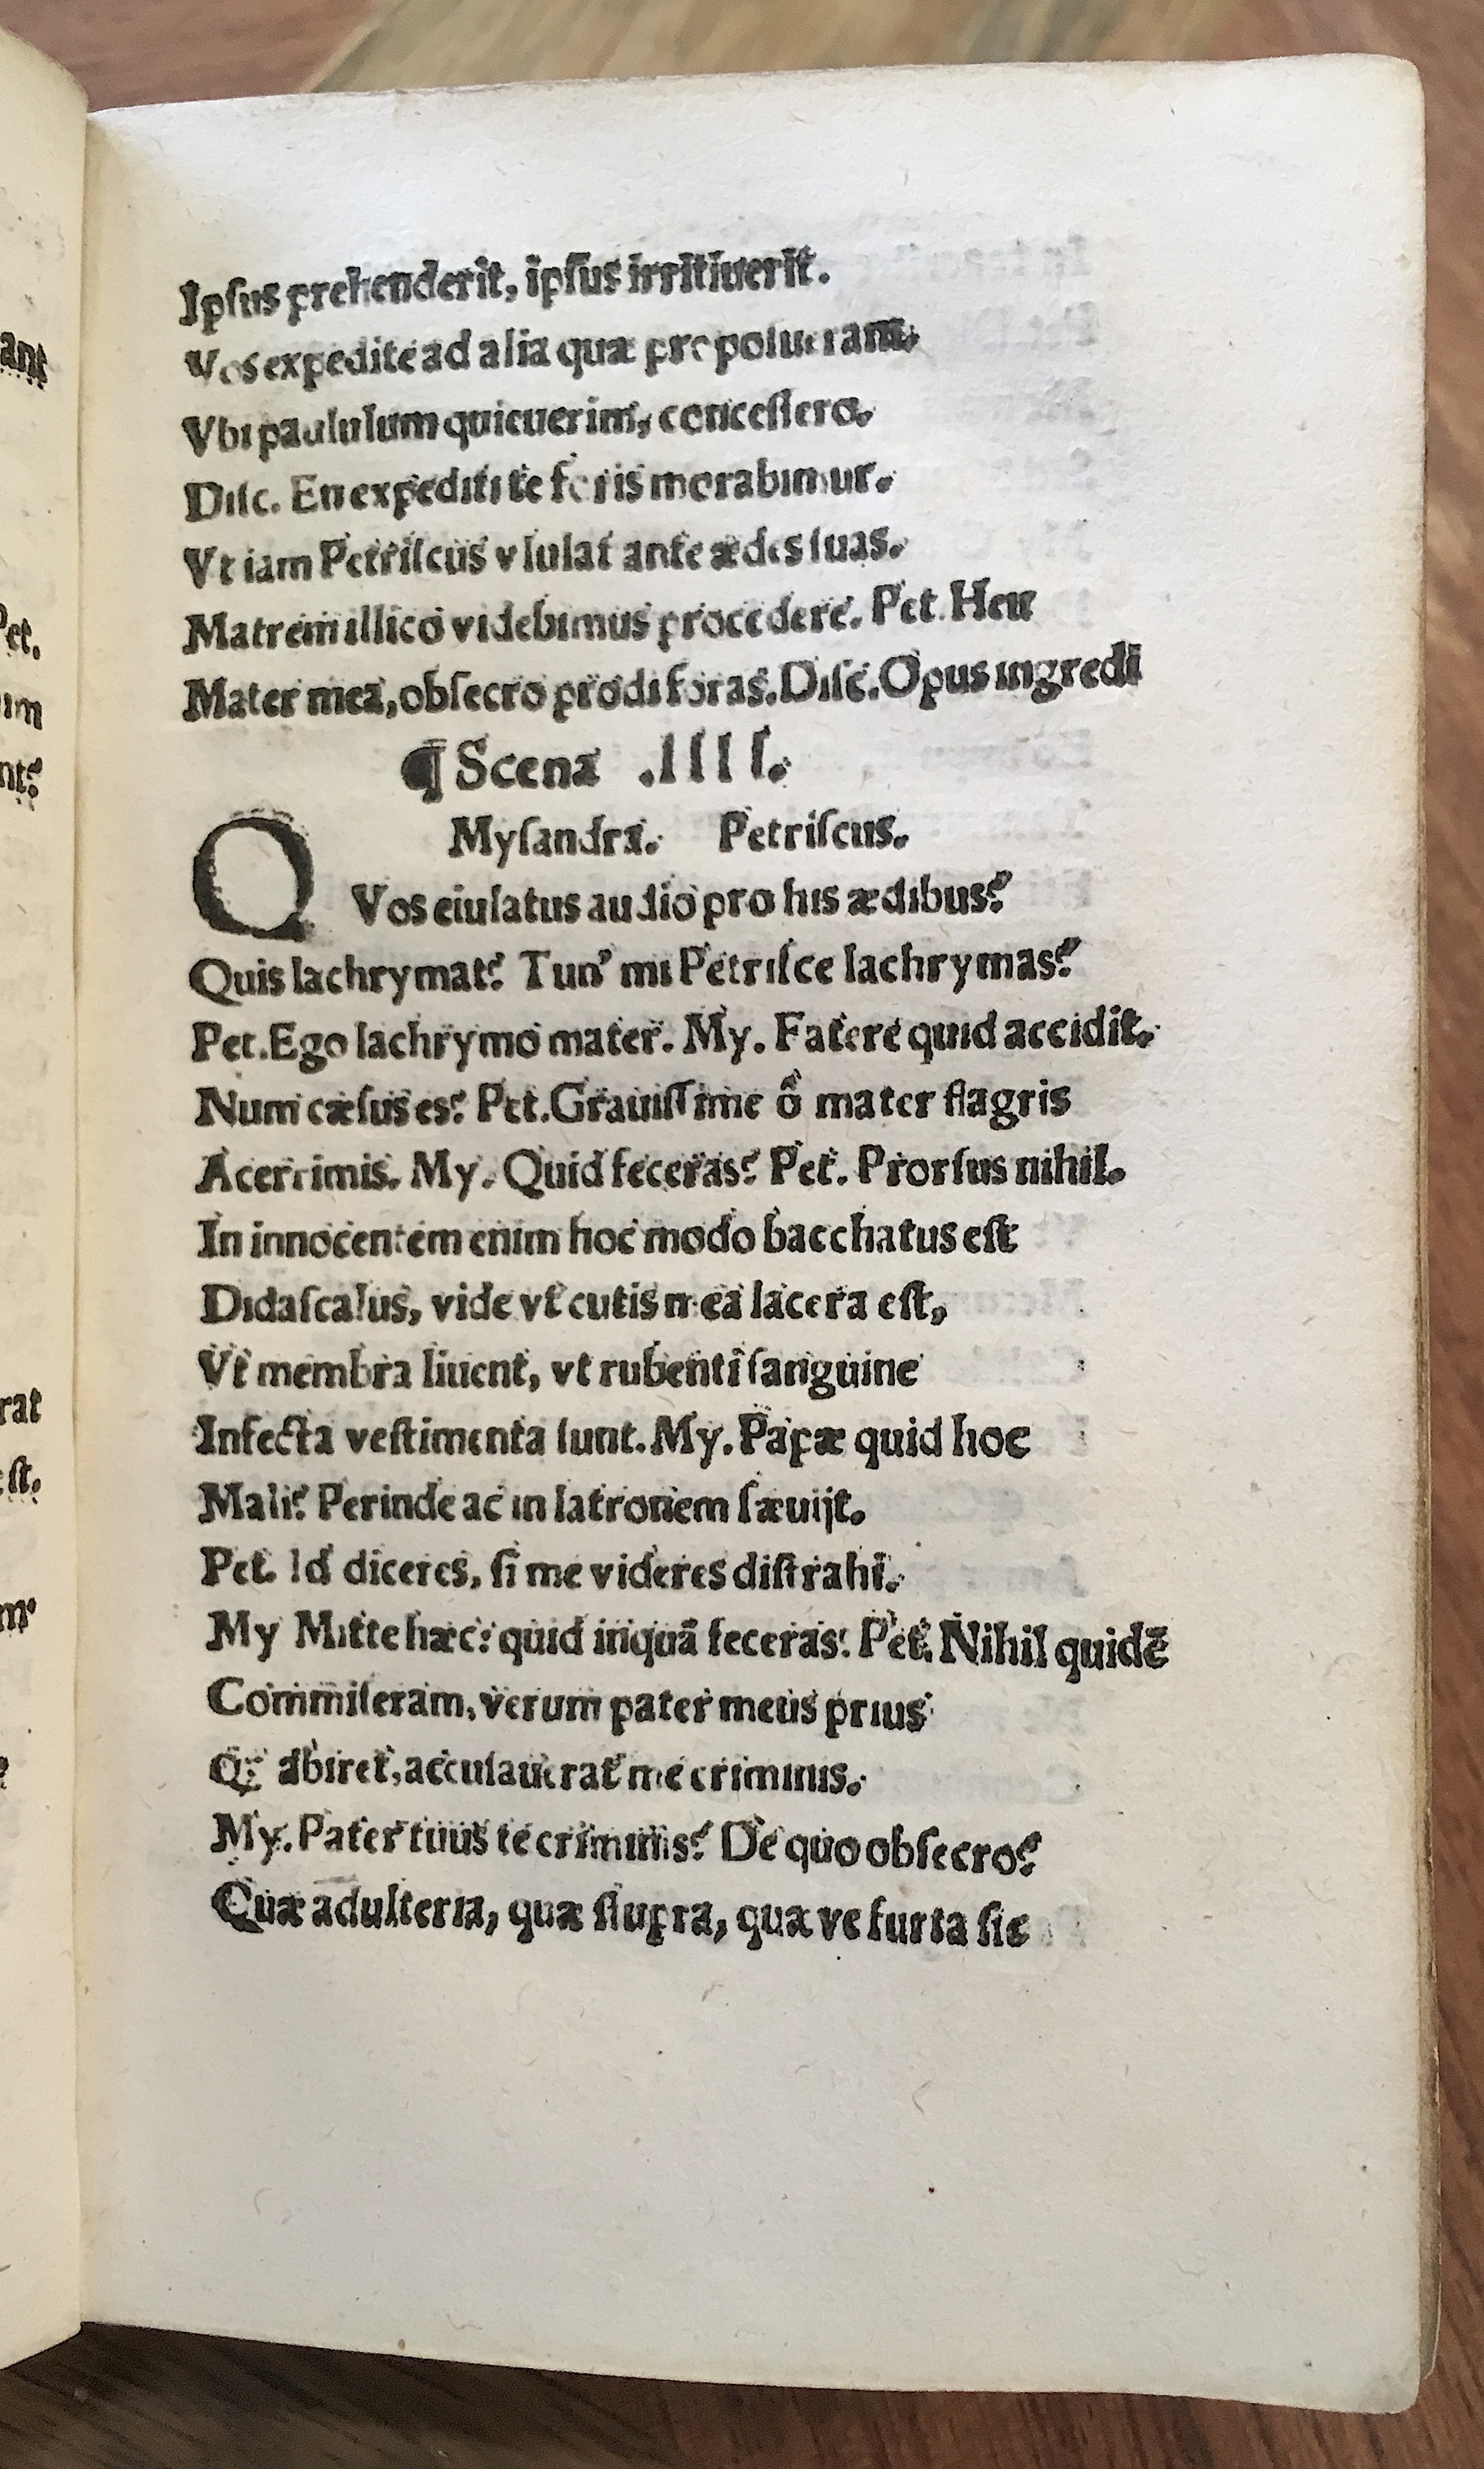 Ipſus prehenderit, ipſus irritiuerit.
Vos expedite ad alia quæ propoſueram,
Vbi paululum quieuerim, conceſſero.
Diſc. En expediti te foris morabimur.
Vt iam Petriſcus vlulat ante ædes ſuas.
Matrem illico videbimus procedere. Pet. Heu
Mater mea, obſecro prodi foras. Diſc. Opus ingredi
¶ Scena .IIII.
Myſandra. Petriſcus.
QVos eiulatus audio pro his ædibus?
Quis lachrymat? Tun' mi Petriſce lachrymas?
Pet. Ego lachrymo mater. My. Fatere quid accidit.
Num cæſus es? Pet. Grauiſſime ô mater flagris
Acerrimis. My. Quid feceras? Pet. Prorſus nihil.
In innocentem enim hoc modo bacchatus eſt
Didaſcalus, vide vt cutis mea lacera eſt,
Vt membra liuent, vt rubenti ſanguine
Infecta veſtimenta ſunt. My. Papæ quid hoc
Mali? Perinde ac in latronem ſæuijt.
Pet. Id diceres, ſi me videres diſtrahi.
My Mitte hæc: quid inquā feceras? Pet. Nihil quidē
Commiſeram, verum pater meus prius
abiret, accuſauerat me criminis.
My. Pater tuus te criminis? De quo obſecro?
Quæ adulteria, quæ ſtupra, quæ ve furta ſic
ant
Pet.
um
nt?
rat
ſt.
m.